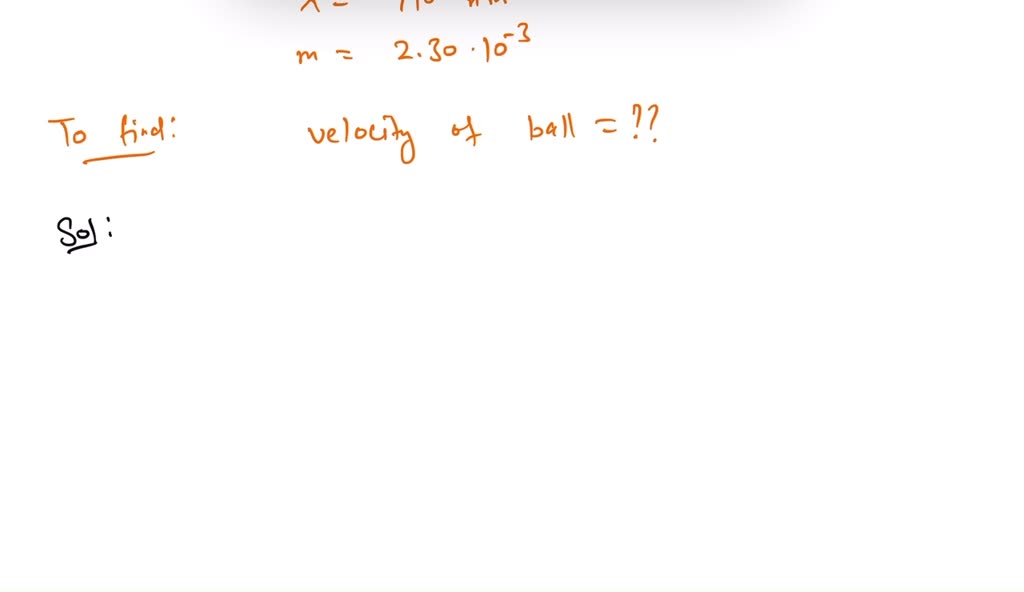 m = 2.30 · 10⁻³
To find: velocity of ball = ??
Sol: